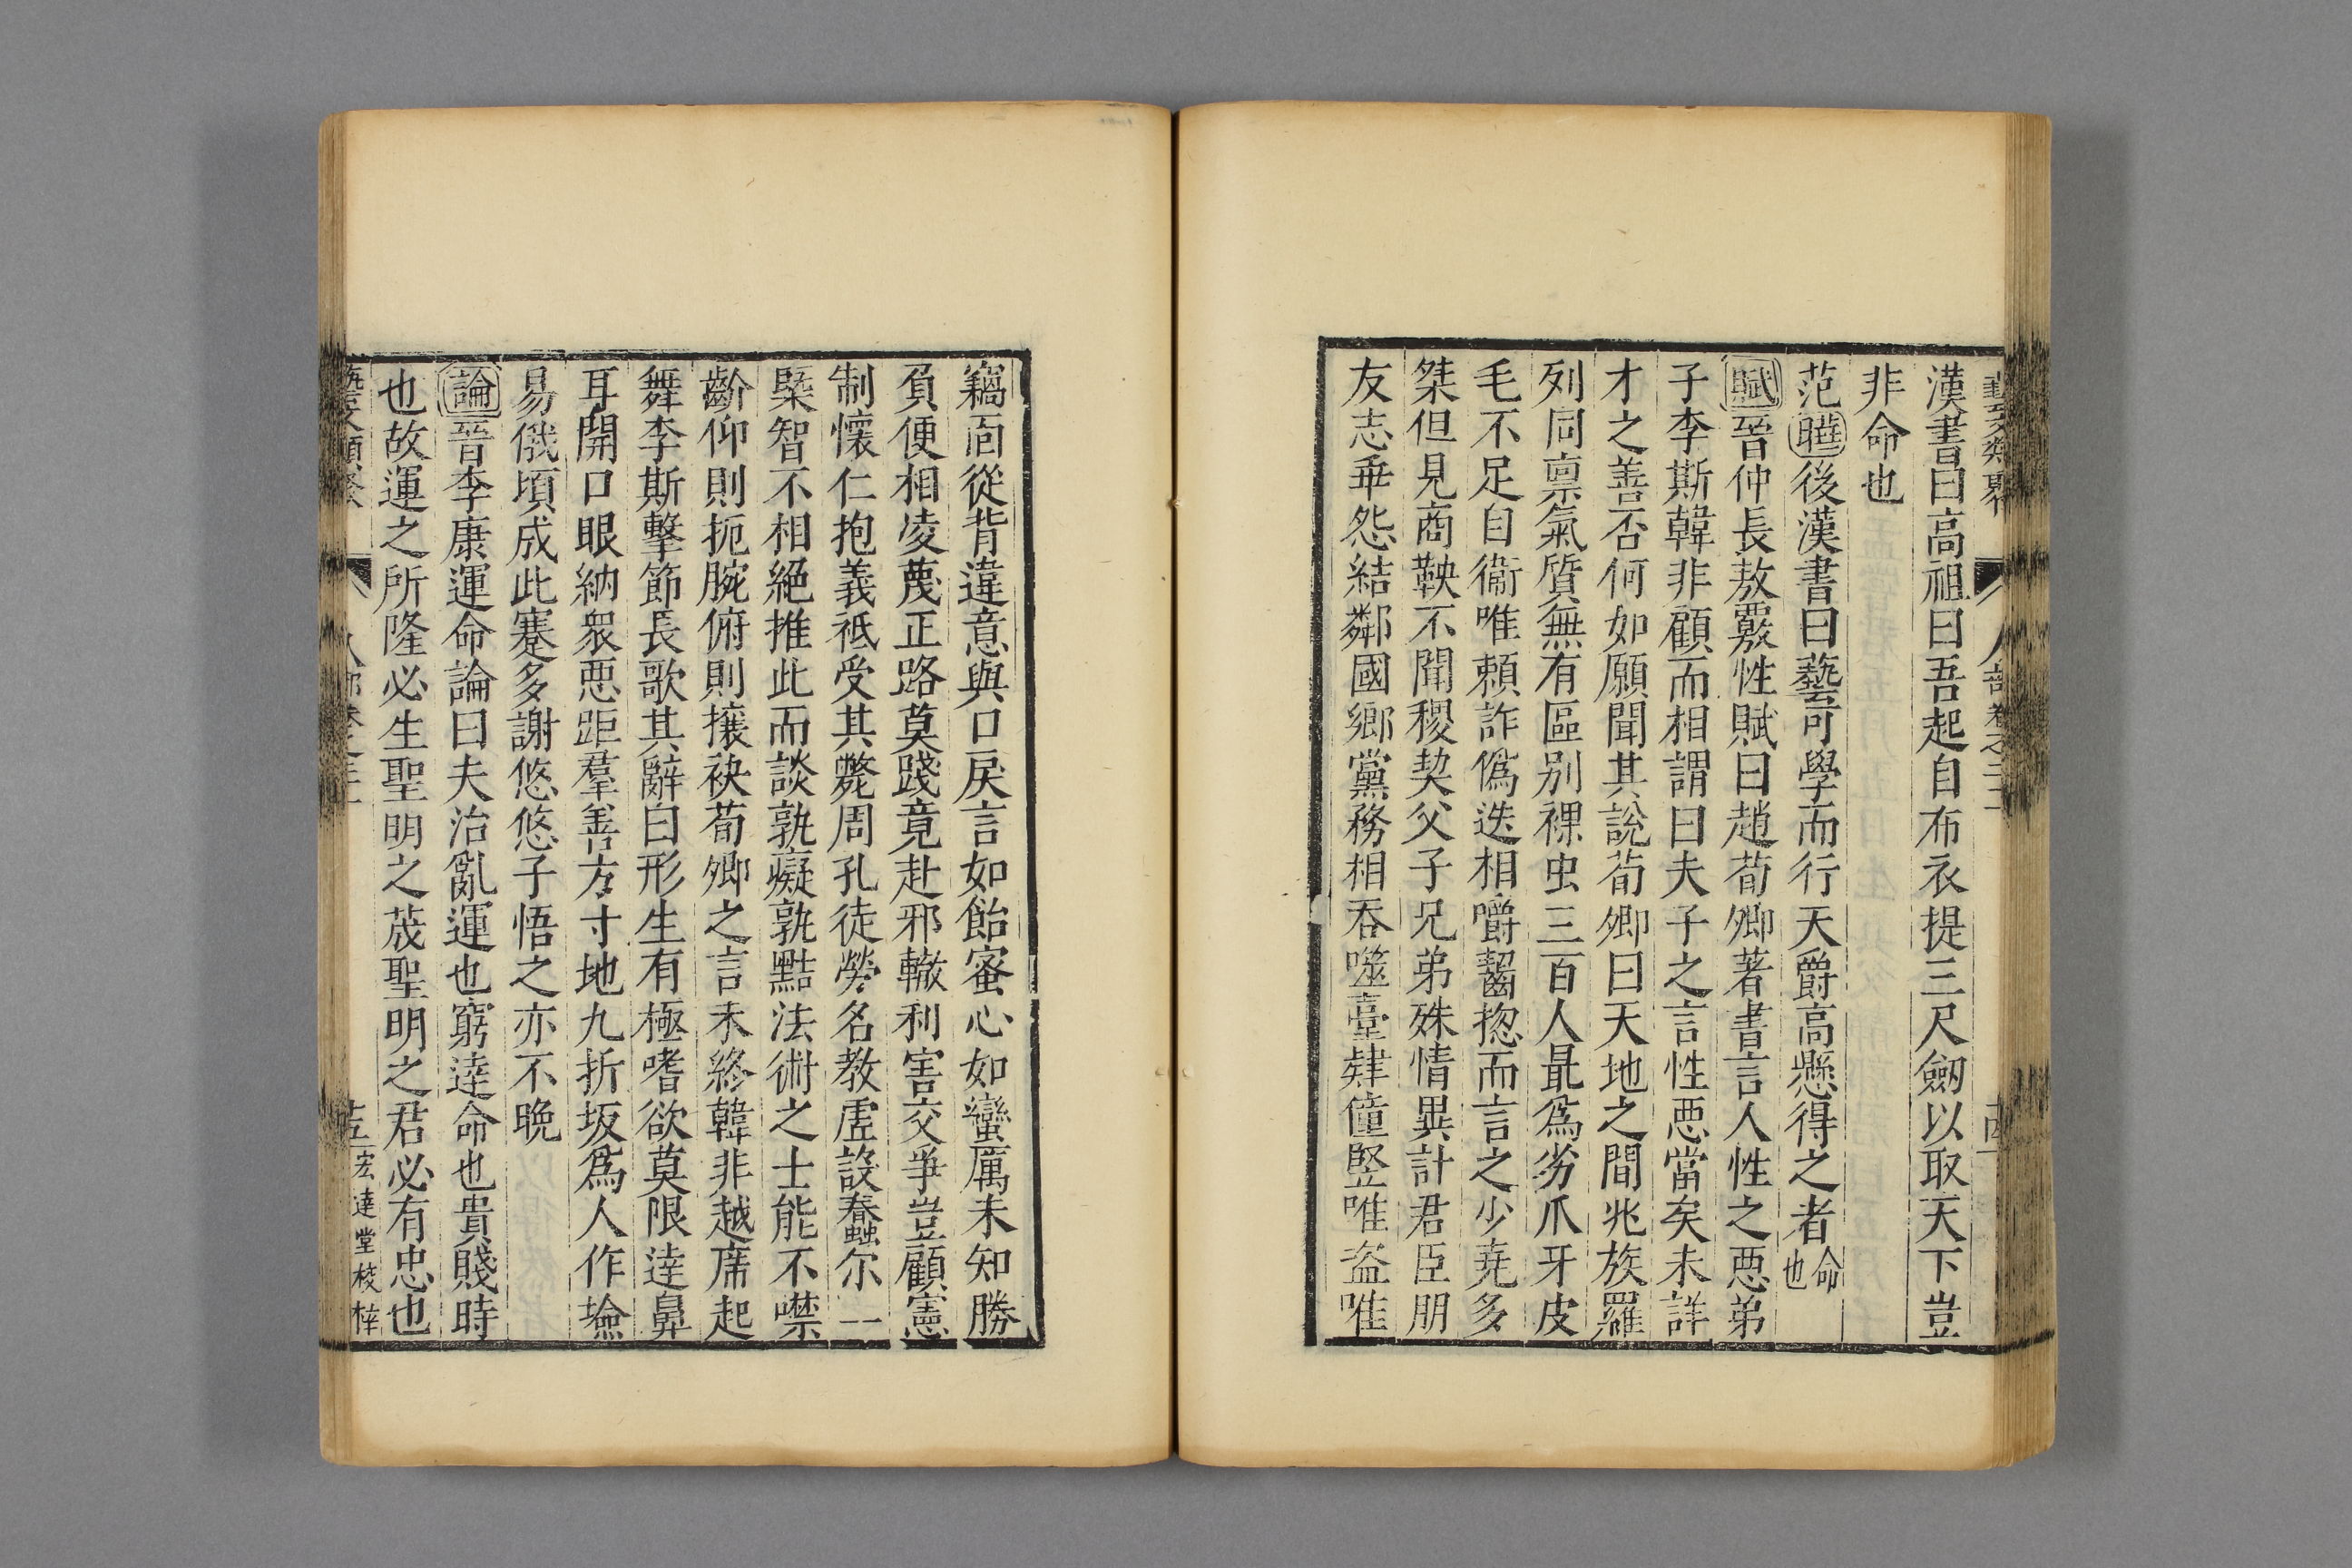 藝文類聚 人部卷之二十一 十四
漢書曰高祖曰吾起自布衣提三尺劒以取天下豈
非命也
范曄後漢書曰藝可學而行天爵高懸得之者命也
賦晉仲長敖覈性賦曰趙荀卿著書言人性之惡弟
子李斯韓非顧而相謂曰夫子之言性惡當矣未詳
才之善否何如願聞其說荀卿曰天地之間兆族羅
列同禀氣質無有區别裸虫三百人最爲劣爪牙皮
毛不足自衞唯賴詐僞迭相嚼齧揔而言之少尭多
桀但見商鞅不聞稷契父子兄弟殊情異計君臣朋
友志乖怨結鄰國鄉黨務相吞噬臺肄僮竪唯盗唯
竊面從背違意與口戾言如飴蜜心如蠻厲未知勝
負便相凌蔑正路莫踐竟赴邪轍利害交爭豈顧憲
制懷仁抱義祗受其斃周孔徒勞名教虗設蠢尔一
槩智不相絕推此而談孰癡孰黠法術之士能不噤
齘仰則扼腕俯則攘袂荀卿之言未終韓非越席起
舞李斯擊節長歌其辭曰形生有極嗜欲莫限逹鼻
耳開口眼納衆惡距羣善方寸地九折坂爲人作險
易俄頃成此蹇多謝悠悠子悟之亦不晩
論晉李康運命論曰夫治亂運也窮逹命也貴賤時
也故運之所隆必生聖明之荿聖明之君必有忠也
藝文類聚 人部卷之二十一 十五 宏達堂校梓